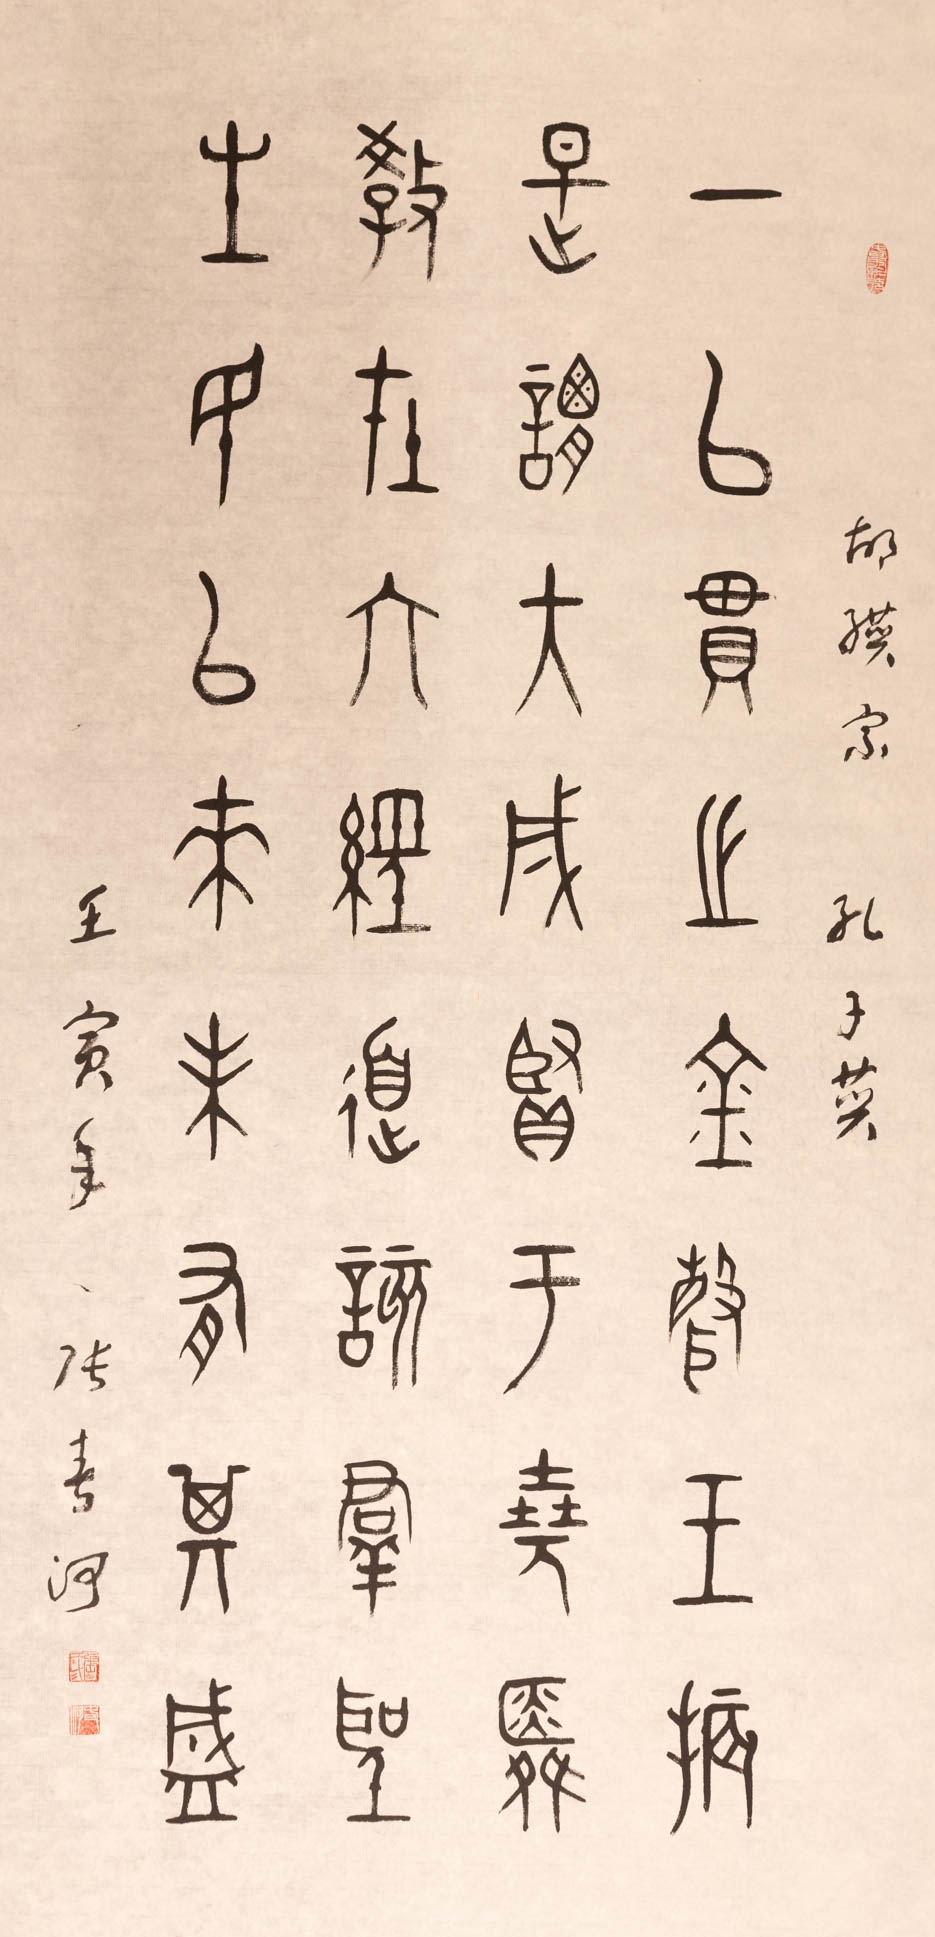 胡纘宗 孔子贊
一以貫之金聲玉振
是謂大成賢于堯舜
教在六經道群聖
生民以來未有其盛
壬寅年 张河